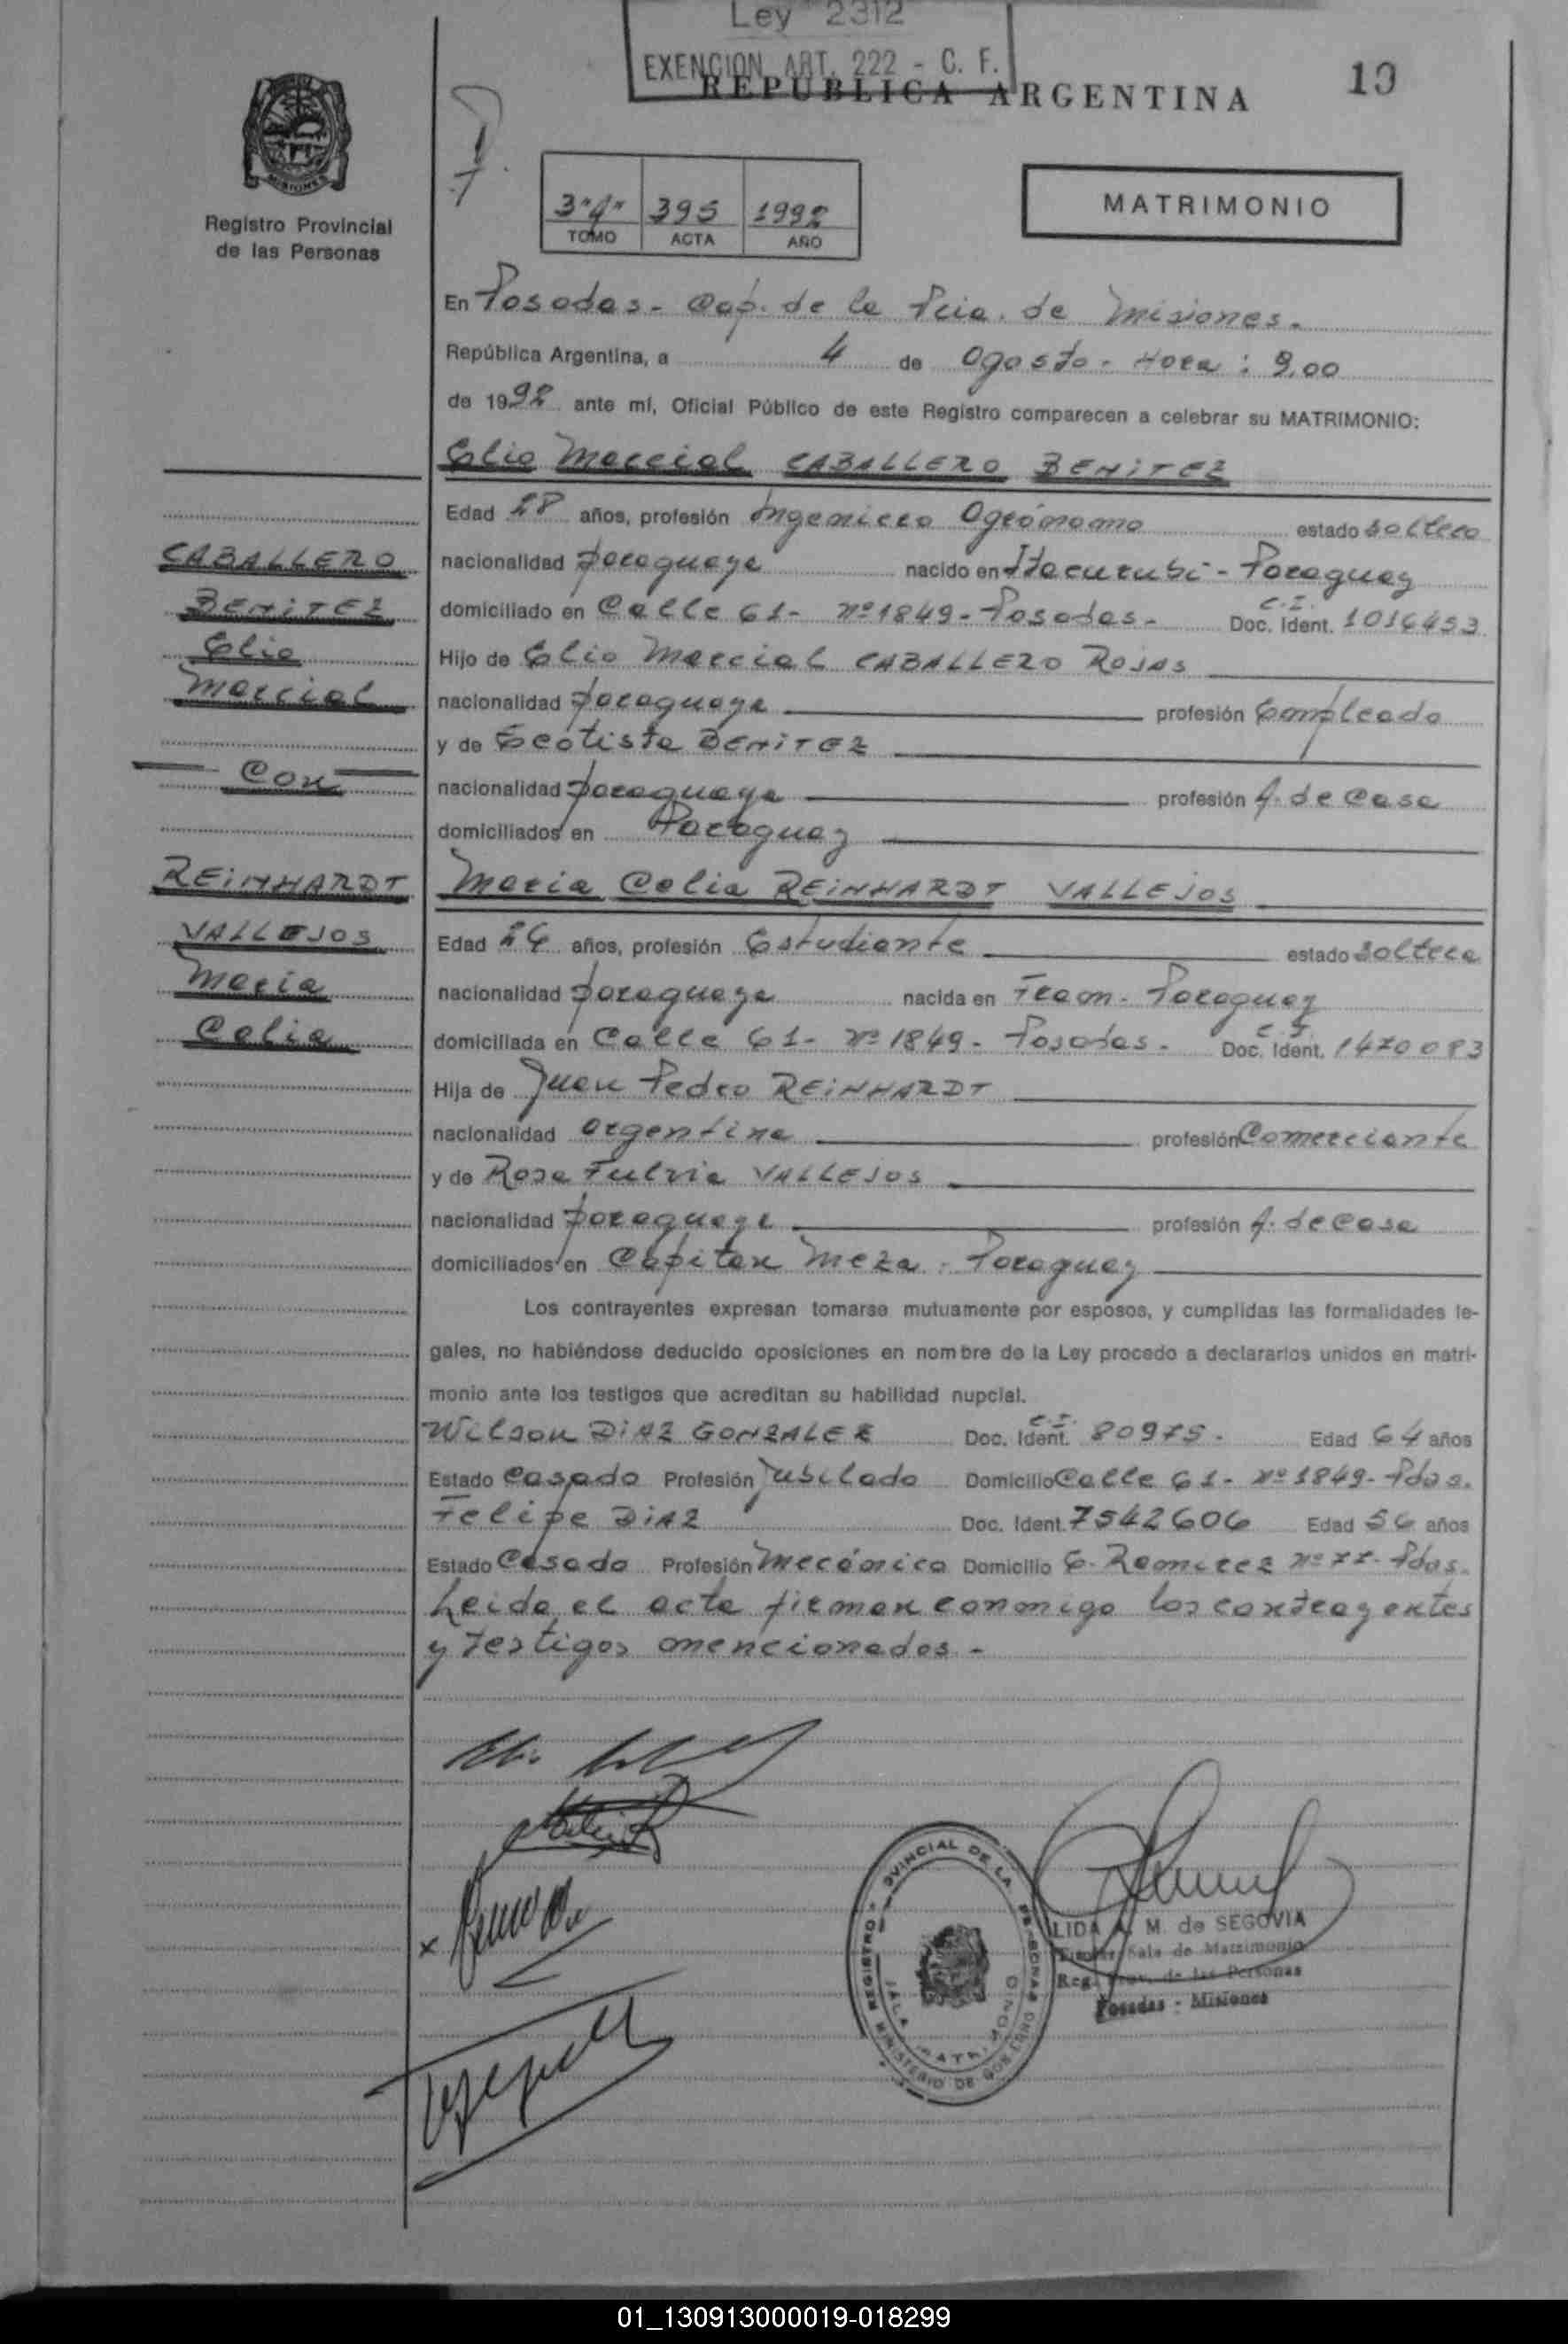 Ley 2312
EXENCION ART. 222 - C. F.
REPUBLICA ARGENTINA
19
MISIONES
Registro Provincial
de las Personas
3"A" 395 1992
TOMO ACTA AÑO
MATRIMONIO
En Posadas - Cap. de la Pcia. de Misiones.
República Argentina, a 4 de Agosto - Hora: 9,00
de 1992 ante mí, Oficial Público de este Registro comparecen a celebrar su MATRIMONIO:
Elio Marcial CABALLERO BENITEZ
Edad 28 años, profesión Ingeniero Agrónomo estado soltero
CABALLERO
nacionalidad paraguaya nacido en Itacurubí - Paraguay
BENITEZ
domiciliado en Calle 61 - nº 1849 - Posadas - C.I. Doc. Ident. 1016453
Elio
Hijo de Elio Marcial CABALLERO ROJAS
Marcial
nacionalidad paraguaya profesión Empleado
y de Ecótista BENITEZ
Con
nacionalidad paraguaya profesión A. de Casa
domiciliados en Paraguay
REINHARDT
Maria Celia REINHARDT VALLEJOS
VALLEJOS
Edad 24 años, profesión Estudiante estado soltera
Maria
nacionalidad paraguaya nacida en Fram - Paraguay
Celia
domiciliada en Calle 61 - nº 1849 - Posadas - C.I. Doc. Ident. 1470083
Hija de Juan Pedro REINHARDT
nacionalidad argentina profesión Comerciante
y de Rosa Fulvia VALLEJOS
nacionalidad paraguaya profesión A. de Casa
domiciliados en Capitan Meza - Paraguay
Los contrayentes expresan tomarse mutuamente por esposos, y cumplidas las formalidades le-
gales, no habiéndose deducido oposiciones en nombre de la Ley procedo a declararlos unidos en matri-
monio ante los testigos que acreditan su habilidad nupcial.
Wilson DIAZ GONZALEZ C.I. Doc. Ident. 80975. Edad 64 años
Estado Casado Profesión Jubilado Domicilio Calle 61 - nº 1849 - Pdas.
Felipe DIAZ Doc. Ident. 7542606 Edad 56 años
Estado Casado Profesión Mecánico Domicilio E. Ramirez nº 77 - Pdas.
Leida el acta firman conmigo los contrayentes
y testigos mencionados -
REGISTRO PROVINCIAL DE LAS PERSONAS
SALA MATRIMONIO
MINISTERIO DE GOBIERNO
LIDA A. M. de SEGOVIA
Sala de Matrimonio
Reg. Prov. de las Personas
Posadas - Misiones
01_130913000019-018299